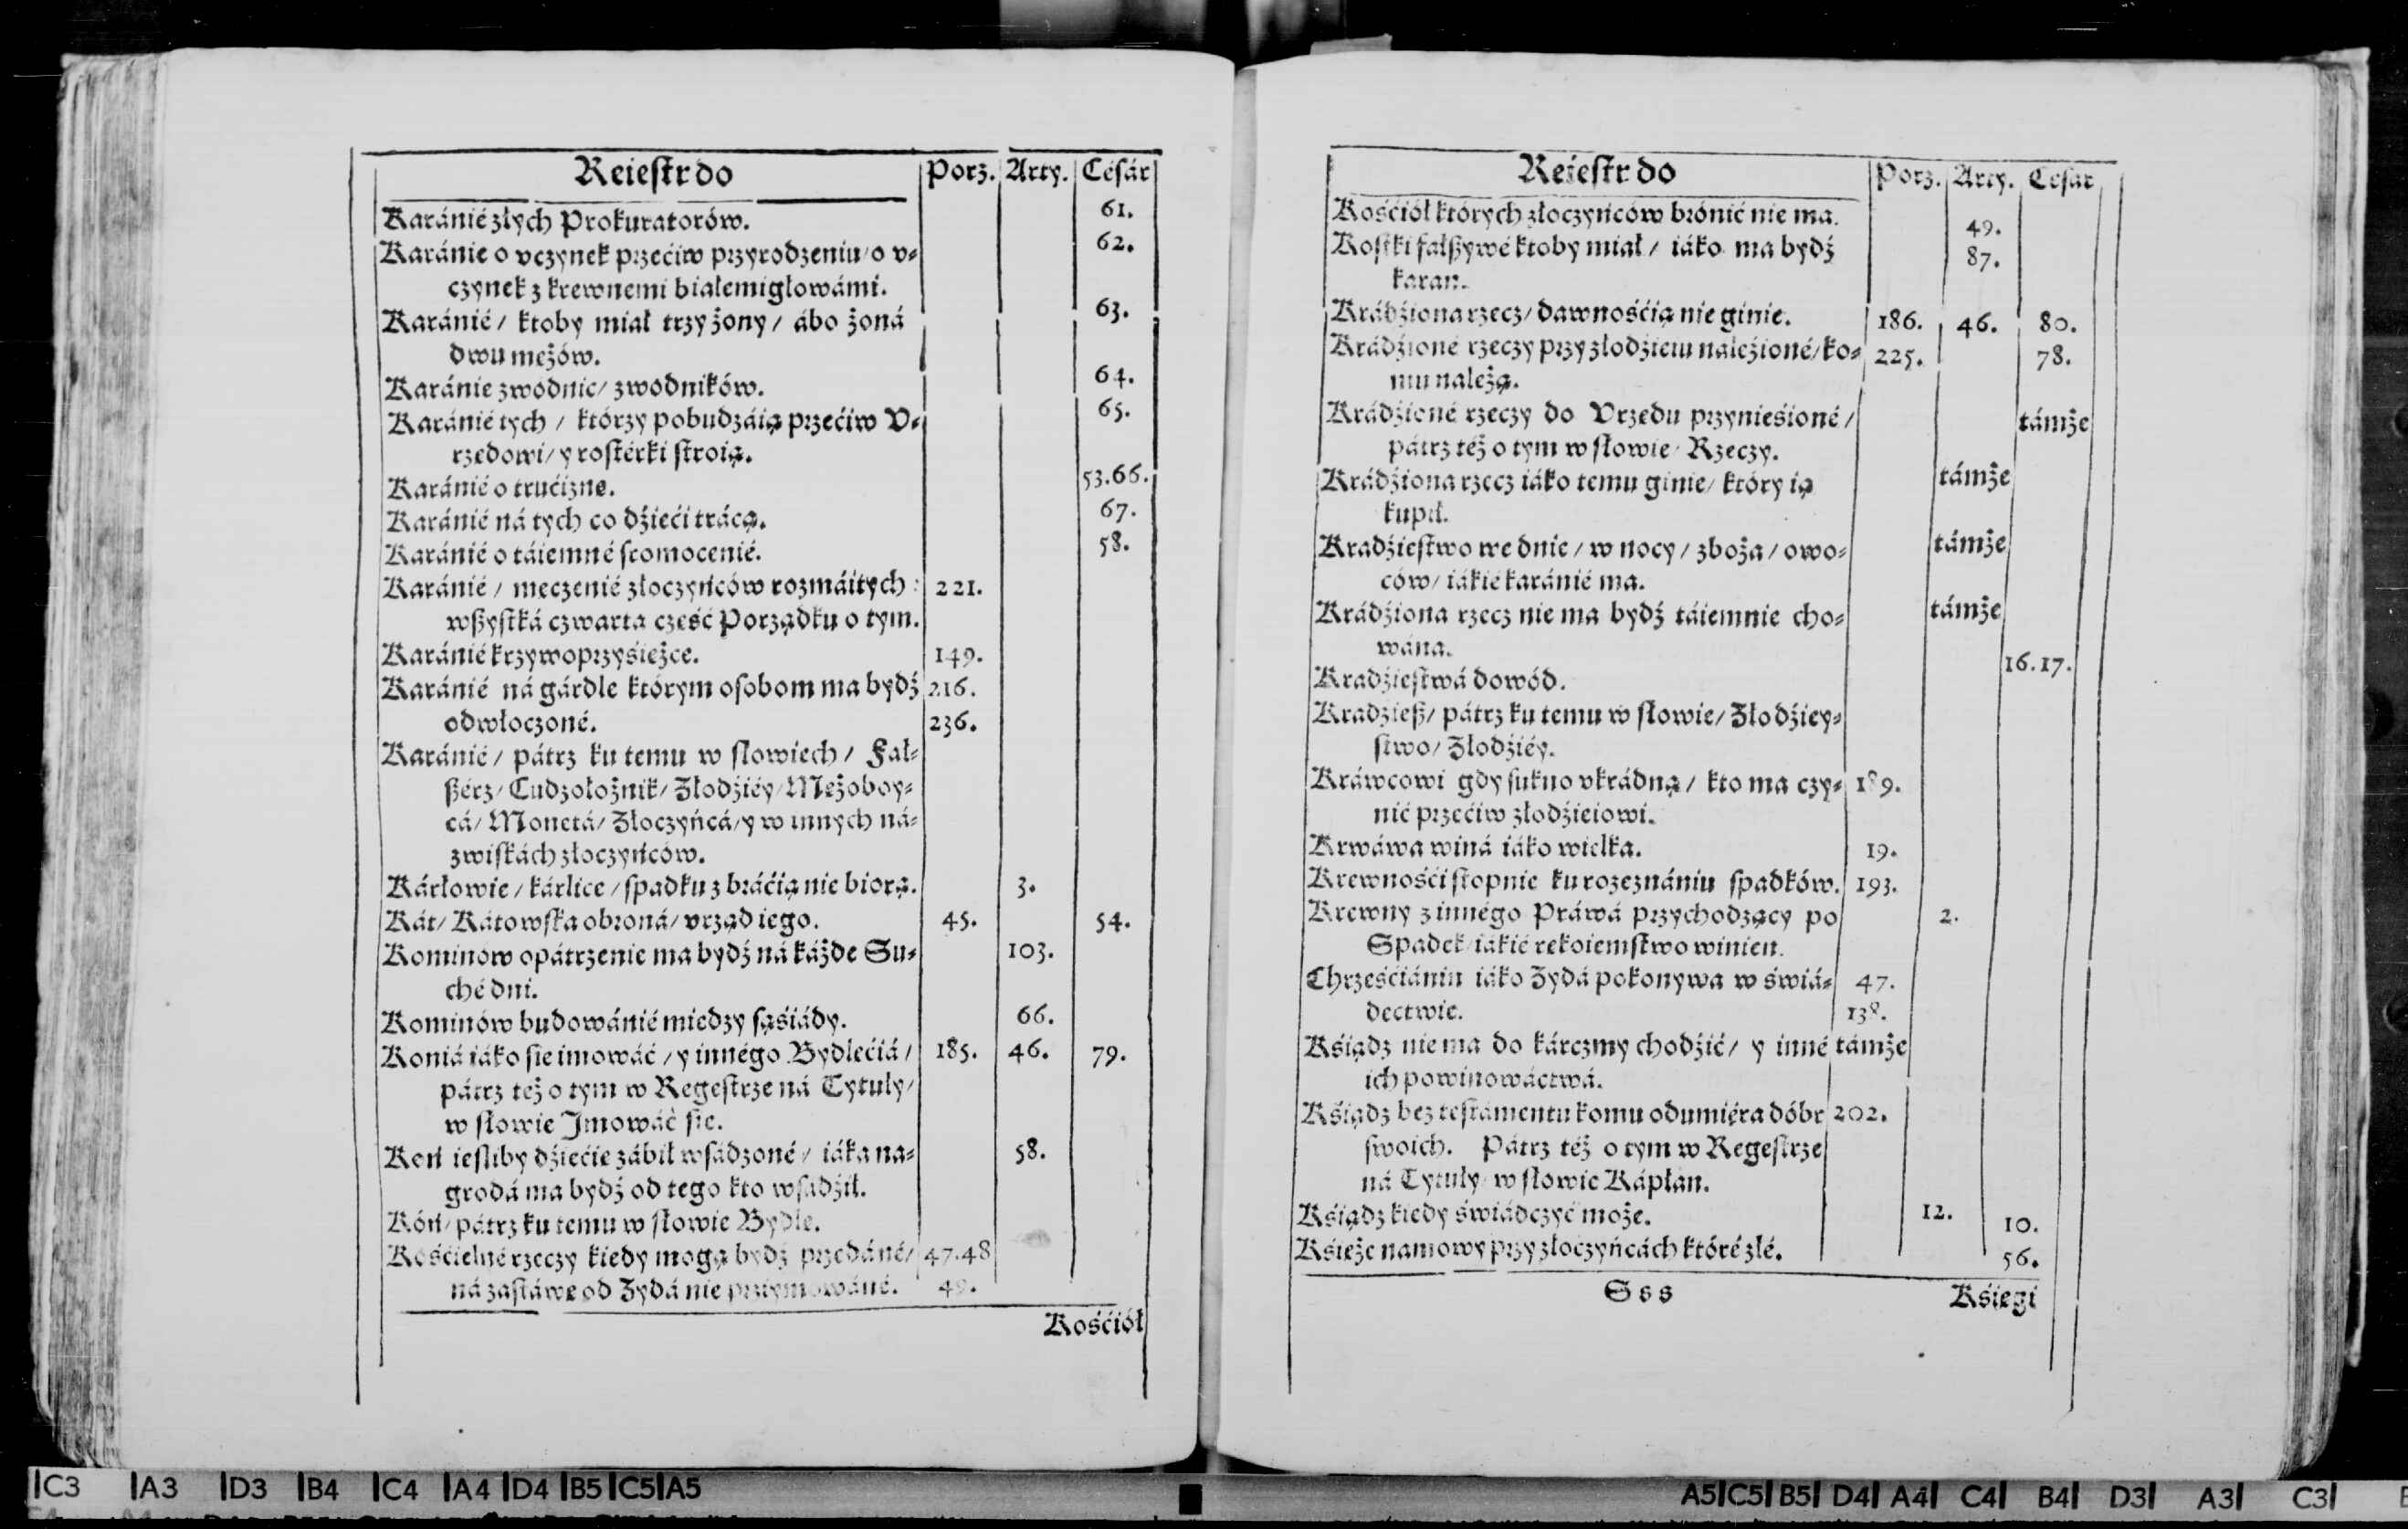 Reieſtr do Porz. Arty. Césár
Karánié złych Prokuratorów. 61.
Karánie o vczynek przećiw przyrodzeniu/ o v⸗ 62.
czynek z krewnemi białemigłowámi.
Karánié / ktoby miał trzy żony / ábo żoná 63.
dwu meżów.
Karánie zwodnic/ zwodników. 64.
Karánié tych / którzy pobudzáią przećiw V⸗ 65.
rzedowi/ y rostérki stroią.
Karánié o trućizne. 53.66.
Karánié ná tych co dźieći trácą. 67.
Karánié o táiemné sromocenié. 58.
Karánié / meczenié złoczyńców rozmáitych : 221.
wßystká czwarta cześć Porządku o tym.
Karánié krzywoprzyśieżce. 149.
Karánié ná gárdle którym osobom ma bydź 216.
odwłoczoné. 236.
Karánié / pátrz ku temu w słowiech / Fał⸗
ßérz/ Cudzołożnik/ Złodźiéy/ Meżoboy⸗
cá/ Monetá/ Złoczyńcá/ y w innych ná⸗
zwiskách złoczyńców.
Kárłowie / kárlice / spadku z bráćią nie biorą. 3.
Kát/ Kátowska obroná/ vrząd iego. 45. 54.
Kominów opátrzenie ma bydź ná káżde Su⸗ 103.
ché dni.
Kominów budowánié miedzy sąśiády. 66.
Koniá iáko sie imowáć / y innégo Bydlećiá / 185. 46. 79.
pátrz też o tym w Regestrze ná Tytuły/
w słowie Imowáć sie.
Koń iesliby dźiećie zábił wsádzoné / iáka na⸗ 58.
grodá ma bydź od tego kto wsadźił.
Kóń/ pátrz ku temu w słowie Bydle.
Kośćielné rzeczy kiedy mogą bydź przedáné/ 47.48
ná zastáwe od Zydá nie prziymowáné. 49.
Kośćiół
Reiestr do Porz. Arty. Césár
Kośćiół których złoczyńców bronić nie ma. 49.
Kostki falßywé ktoby miał / iáko ma bydź 87.
karan.
Krádźiona rzecz/ dawnośćią nie ginie. 186. 46. 80.
Krádźioné rzeczy przy złodźieiu naleźioné/ ko⸗ 225. 78.
mu należą.
Krádźioné rzeczy do Vrzedu przynieśioné / támże
pátrz téż o tym w słowie/ Rzeczy.
Krádźiona rzecz iáko temu ginie/ który ią támże
kupił.
Kradźiestwo we dnie / w nocy / zboża / owo⸗ támże
ców/ iákié karánié ma.
Krádźiona rzecz nie ma bydź táiemnie cho⸗ támże
wána.
Kradźiestwá dowód. 16.17.
Kradźieß/ pátrz ku temu w słowie/ Złodźiey⸗
stwo/ Złodźiéy.
Kráwcowi gdy sukno vkrádną / kto ma czy⸗ 189.
nić przećiw złodźieiowi.
Krwáwa winá iáko wielka. 19.
Krewnośći stopnie ku rozeznániu spadków. 193.
Krewny z innégo Práwá przychodzący po 2.
Spadek/ iákié rekoiemstwo winien.
Chrześćiánin iáko Zydá pokonywa w świá⸗ 47.
dectwie. 138.
Kśiądz nie ma do kárczmy chodźić/ y inné támże
ich powinowáctwá.
Kśiądz bez testámentu komu odumiéra dóbr 202.
swoich. Pátrz téż o tym w Regestrze
ná Tytuły/ w słowie Kápłan.
Kśiądz kiedy świádczyć może. 12. 10.
Kśieże namowy przy złoczyńcách któré złé. 56.
Sss Kśiegi
C3 A3 D3 B4 C4 A4 D4 B5 C5 A5
A5 C5 B5 D4 A4 C4 B4 D3 A3 C3